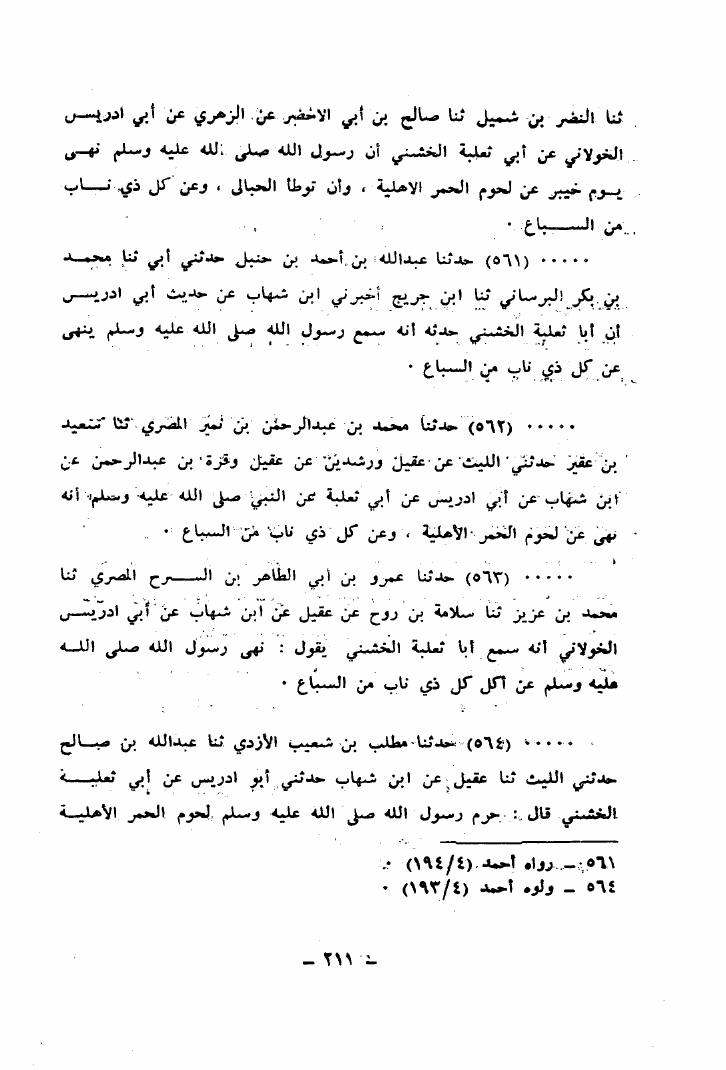 ثنا النضر بن شميل ثنا صالح بن أبي الاخضر عن الزهري عن أبي ادريس
الخولاني عن أبي ثعلبة الخشني أن رسول الله صلى الله عليه وسلم نهى
يوم خيبر عن لحوم الحمر الاهلية ، وأن توطأ الحبالى ، وعن كل ذي ناب
من السباع ٠
٠٠٠٠٠ (٥٦١) حدثنا عبدالله بن أحمد بن حنبل حدثني أبي ثنا محمد
بن بكر البرساني ثنا ابن جريج أخبرني ابن شهاب عن حديث أبي ادريس
أن أبا ثعلبة الخشني حدثه أنه سمع رسول الله صلى الله عليه وسلم ينهى
عن كل ذي ناب من السباع ٠
٠٠٠٠٠ (٥٦٢) حدثنا محمد بن عبدالرحمن بن نمير المصري ثنا سعيد
بن عقير حدثني الليث عن عقيل ورشدين عن عقيل وقرة بن عبدالرحمن عن
ابن شهاب عن أبي ادريس عن أبي ثعلبة عن النبي صلى الله عليه وسلم أنه
نهى عن لحوم الحمر الأهلية ، وعن كل ذي ناب من السباع ٠
٠٠٠٠٠ (٥٦٣) حدثنا عمرو بن أبي الطاهر بن السرح المصري ثنا
محمد بن عزيز ثنا سلامة بن روح عن عقيل عن ابن شهاب عن أبي ادريس
الخولاني أنه سمع أبا ثعلبة الخشني يقول : نهى رسول الله صلى الله
عليه وسلم عن أكل كل ذي ناب من السباع ٠
٠٠٠٠٠ (٥٦٤) حدثنا مطلب بن شعيب الأزدي ثنا عبدالله بن صالح
حدثني الليث ثنا عقيل عن ابن شهاب حدثني أبو ادريس عن أبي ثعلبة
الخشني قال : حرم رسول الله صلى الله عليه وسلم لحوم الحمر الأهلية
٥٦١ ــ رواه أحمد (١٩٤/٤) ٠
٥٦٤ ــ ولوه أحمد (١٩٣/٤) ٠
ــ ٢١١ ــ